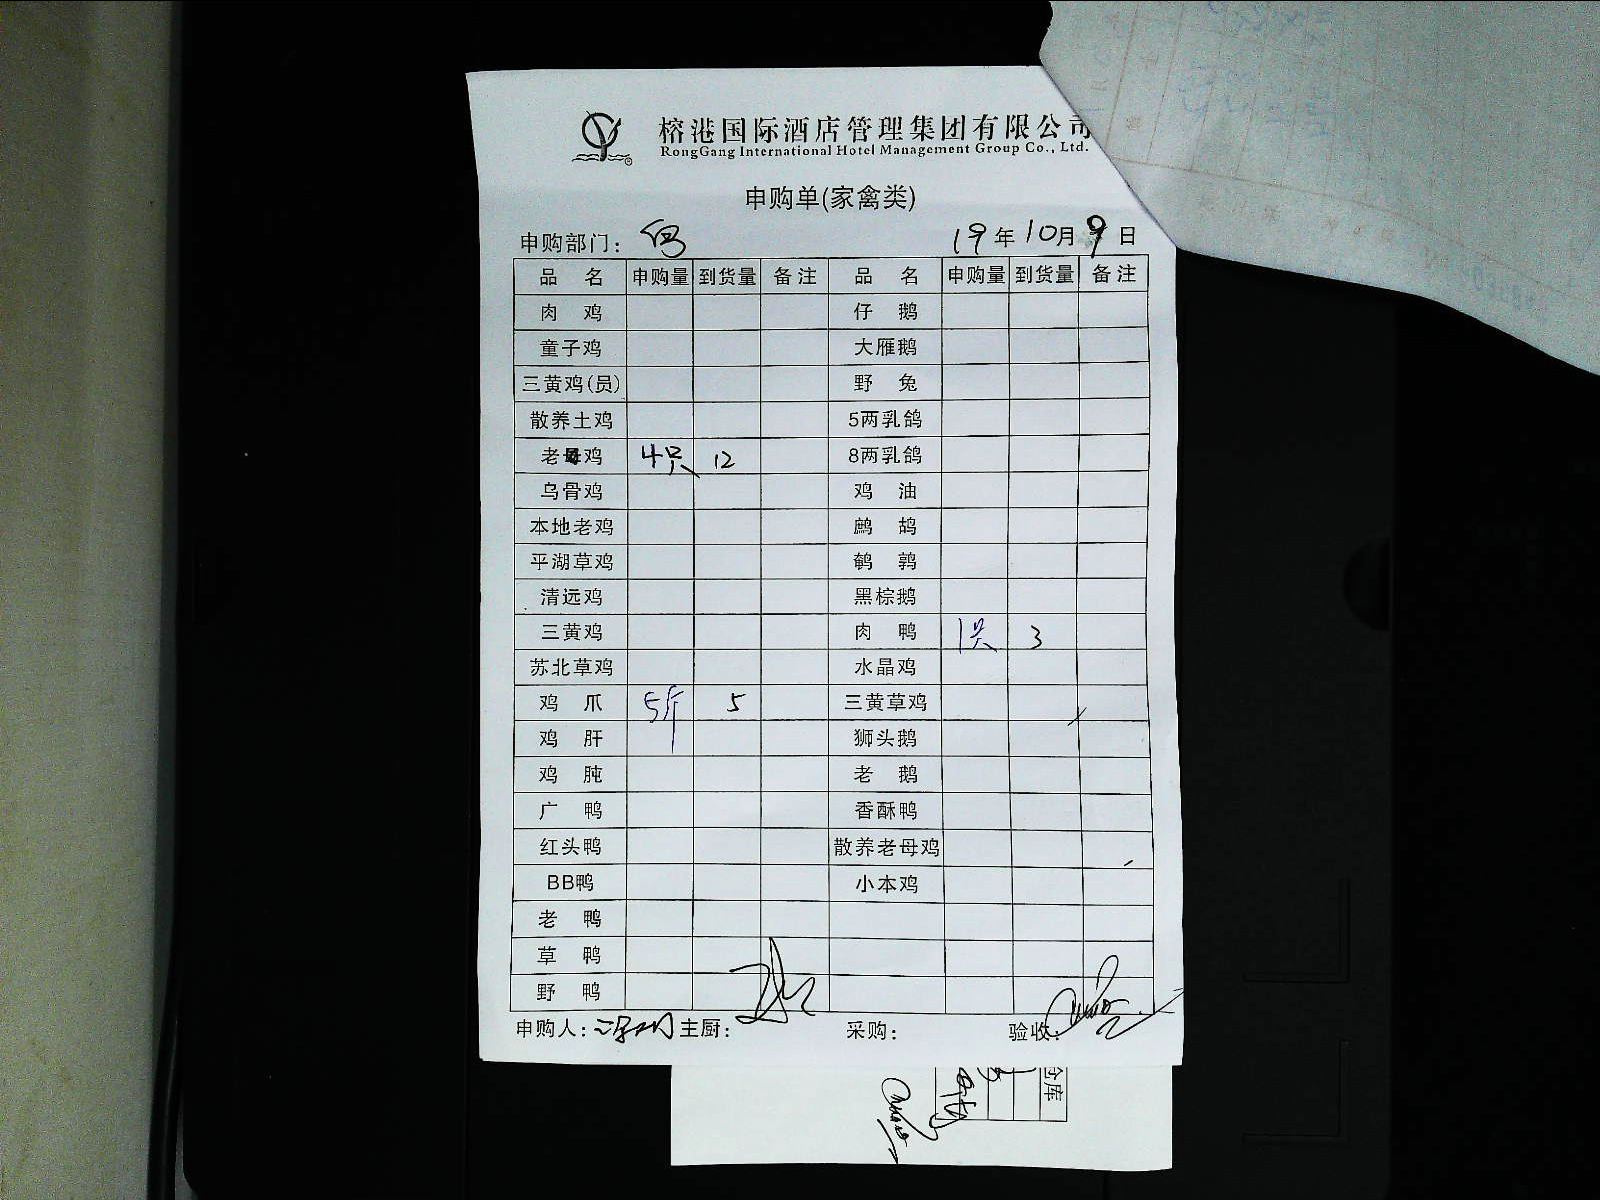 榕港国际酒店管理集团有限公司
RongGang International Hotel Management Group Co., Ltd.
申购单(家禽类)
申购部门：
19年10月9日
品名 申购量 到货量 备注 品名 申购量 到货量 备注
肉鸡 仔鹅
童子鸡 大雁鹅
三黄鸡(员) 野兔
散养土鸡 5两乳鸽
老母鸡 4只 12 8两乳鸽
乌骨鸡 鸡油
本地老鸡 鹧鸪
平湖草鸡 鹌鹑
清远鸡 黑棕鹅
三黄鸡 肉鸭 1只 3
苏北草鸡 水晶鸡
鸡爪 5斤 5 三黄草鸡
鸡肝 狮头鹅
鸡肫 老鹅
广鸭 香酥鸭
红头鸭 散养老母鸡
BB鸭 小本鸡
老鸭
草鸭
野鸭
申购人： 主厨： 采购： 验收：
仓库